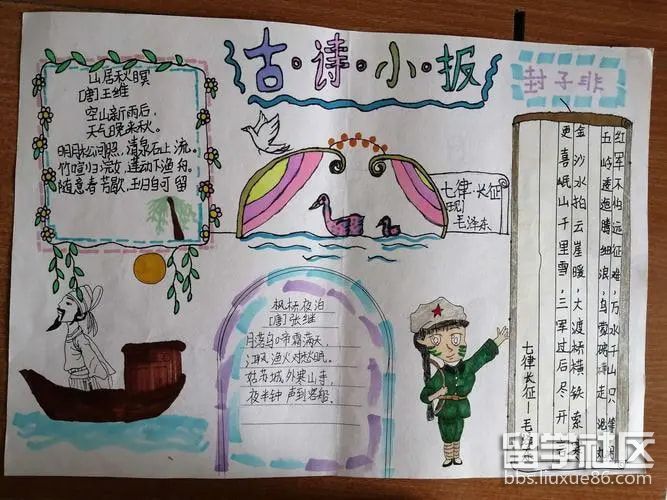 古·诗·小·报
山居秋暝
[唐]王维
空山新雨后，
天气晚来秋。
明月松间照，清泉石上流。
竹喧归浣女，莲动下渔舟。
随意春芳歇，王归自可留
七律·长征
[现]
毛泽东
枫桥夜泊
[唐]张继
月落乌啼霜满天，
江枫渔火对愁眠。
姑苏城外寒山寺，
夜半钟声到客船。
封子非
红军不怕远征难，万水千山只等闲
五岭逶迤腾细浪，乌蒙磅礴走泥丸
金沙水拍云崖暖，大渡桥横铁索寒
更喜岷山千里雪，三军过后尽开
七律长征—毛
留学社区
bbs.liuxue86.com